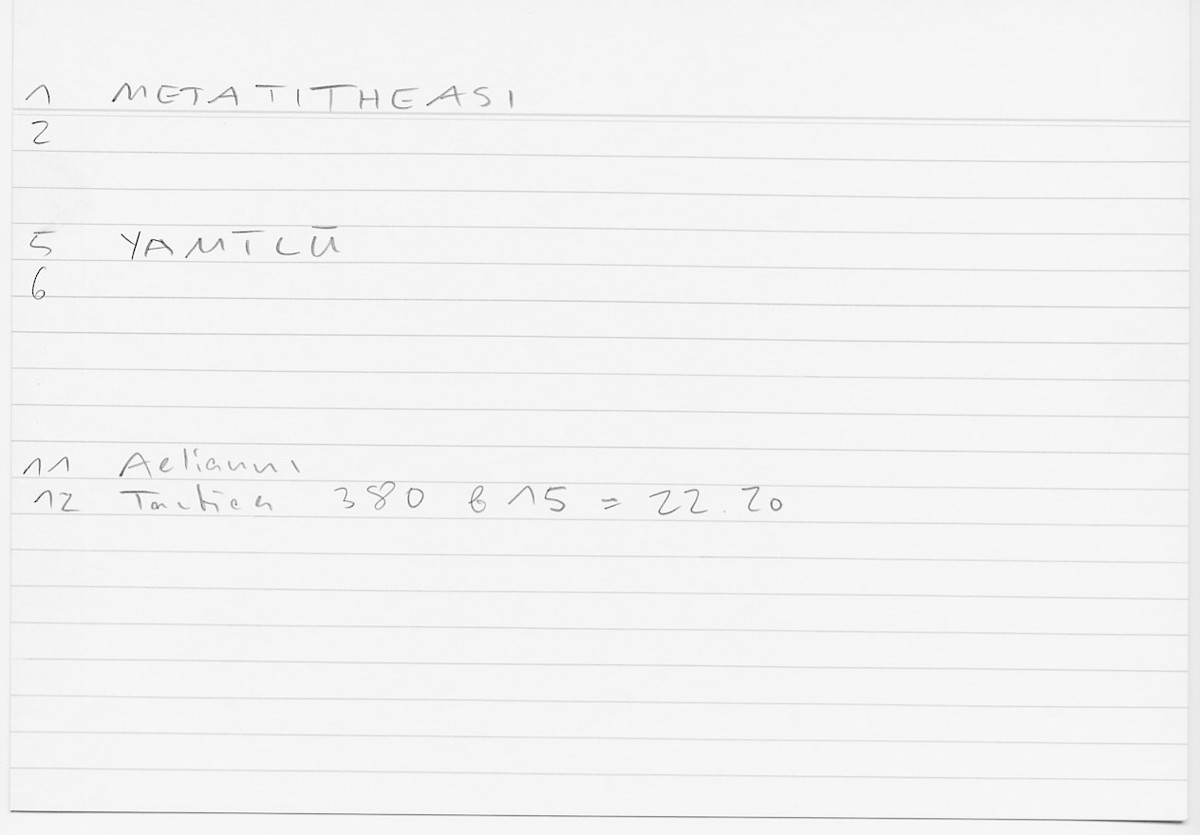 1 METATITHEASI
2
5 YAMĪLŪ
6
11 Aelianus
12 Tactica 380 b 15 = 22.20